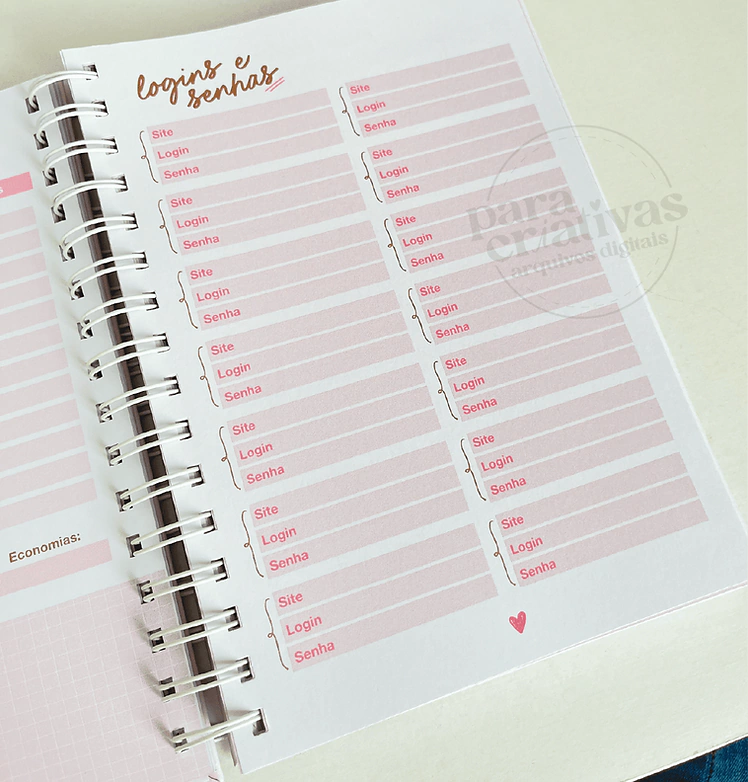 Economias:
logins e
senhas
Site
Login
Senha
Site
Login
Senha
Site
Login
Senha
Site
Login
Senha
Site
Login
Senha
Site
Login
Senha
Site
Login
Senha
Site
Login
Senha
Site
Login
Senha
Site
Login
Senha
Site
Login
Senha
Site
Login
Senha
Site
Login
Senha
Site
Login
Senha
para
criativas
arquivos digitais